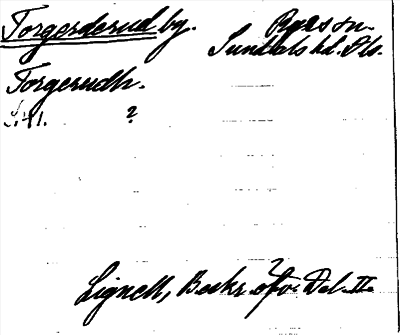 Torgerderud by. Ryrs sn.
Sundals hd. Dls.
Torgerudh.
?
Lignell, Beskr. öfv. Dal. II